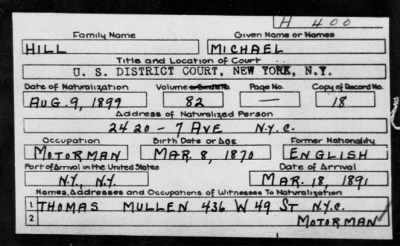 H 400
Family Name Given Name or Names
HILL MICHAEL
Title and Location of Court
U. S. DISTRICT COURT, NEW YORK, N.Y.
Date of Naturalization Volume Page No. Copy of Record No.
AUG. 9, 1899 82 — 18
Address of Naturalized Person
2420 - 7 AVE N.Y.C.
Occupation Birth Date or Age Former Nationality
MOTORMAN MAR. 8, 1870 ENGLISH
Port of Arrival in the United States Date of Arrival
N.Y., N.Y. MAR. 18, 1891
Names, Addresses and Occupations of Witnesses To Naturalization
1 THOMAS MULLEN 436 W 49 ST N.Y.C.
2 MOTORMAN